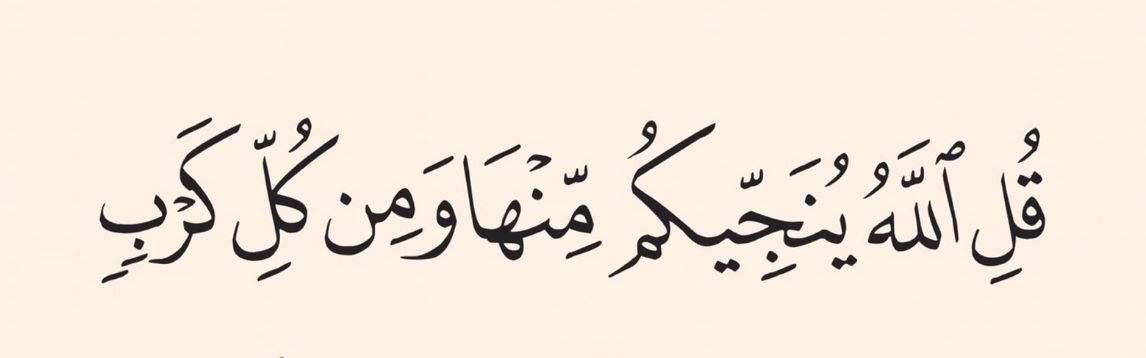 قُلِ ٱللَّهُ يُنَجِّيكُم مِّنْهَا وَمِن كُلِّ كَرْبٍ